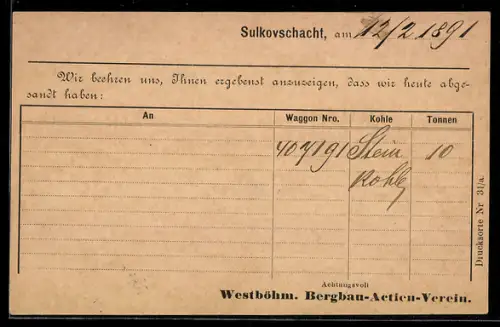 Sulkovschacht, am 12/2 1891
Wir beehren uns, Ihnen ergebenst anzuzeigen, dass wir heute abge-
sandt haben:
An Waggon Nro. Kohle Tonnen
407191 Stein 10
Kohle
Drucksorte Nr 31/a.
Achtungsvoll
Westböhm. Bergbau-Actien-Verein.